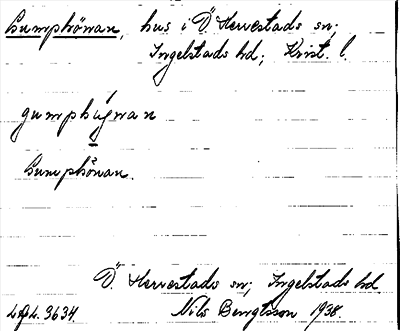 Gumphönan, hus i Ö. Herrestads sn;
Ingelstads hd; Krist. l.
gumphǿnan
Gumphönan.
Ö. Herrestads sn; Ingelstads hd
Nils Bengtsson 1938.